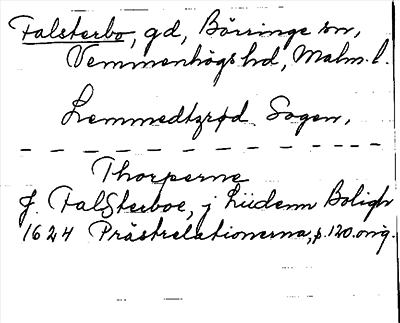 Falsterbo, gd, Börringe sn,
Vemmenhögs hd, Malm. l.
Lemmedtzrød Sogen,
Thorperne
J. Falsterboe, j Liidenn Boligh
1624 Prästrelationerna, p. 120. orig.